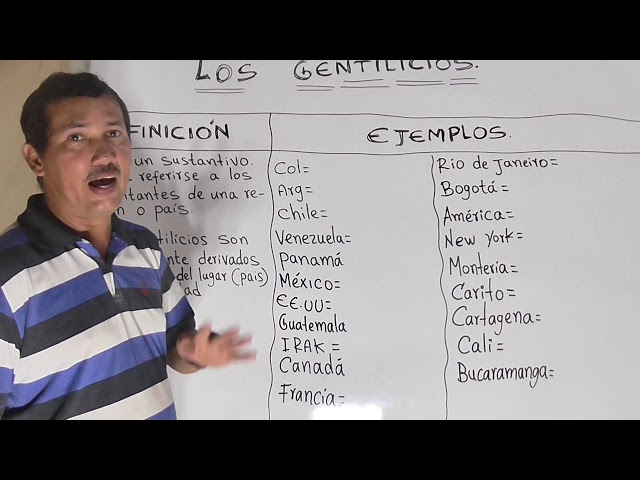 LOS GENTILICIOS.
FINICIÓN
un sustantivo.
referirse a los
tantes de una re-
n o país.
tilicios son
nte derivados
del lugar (pais)
dad
EJEMPLOS.
Col=
Arg=
Chile=
Venezuela=
Panamá
México=
EE.UU=
Guatemala
IRAK =
Canadá
Francia=
Rio de Janeiro=
Bogotá=
América=
New York=
Montería=
Carito=
Cartagena=
Cali=
Bucaramanga=